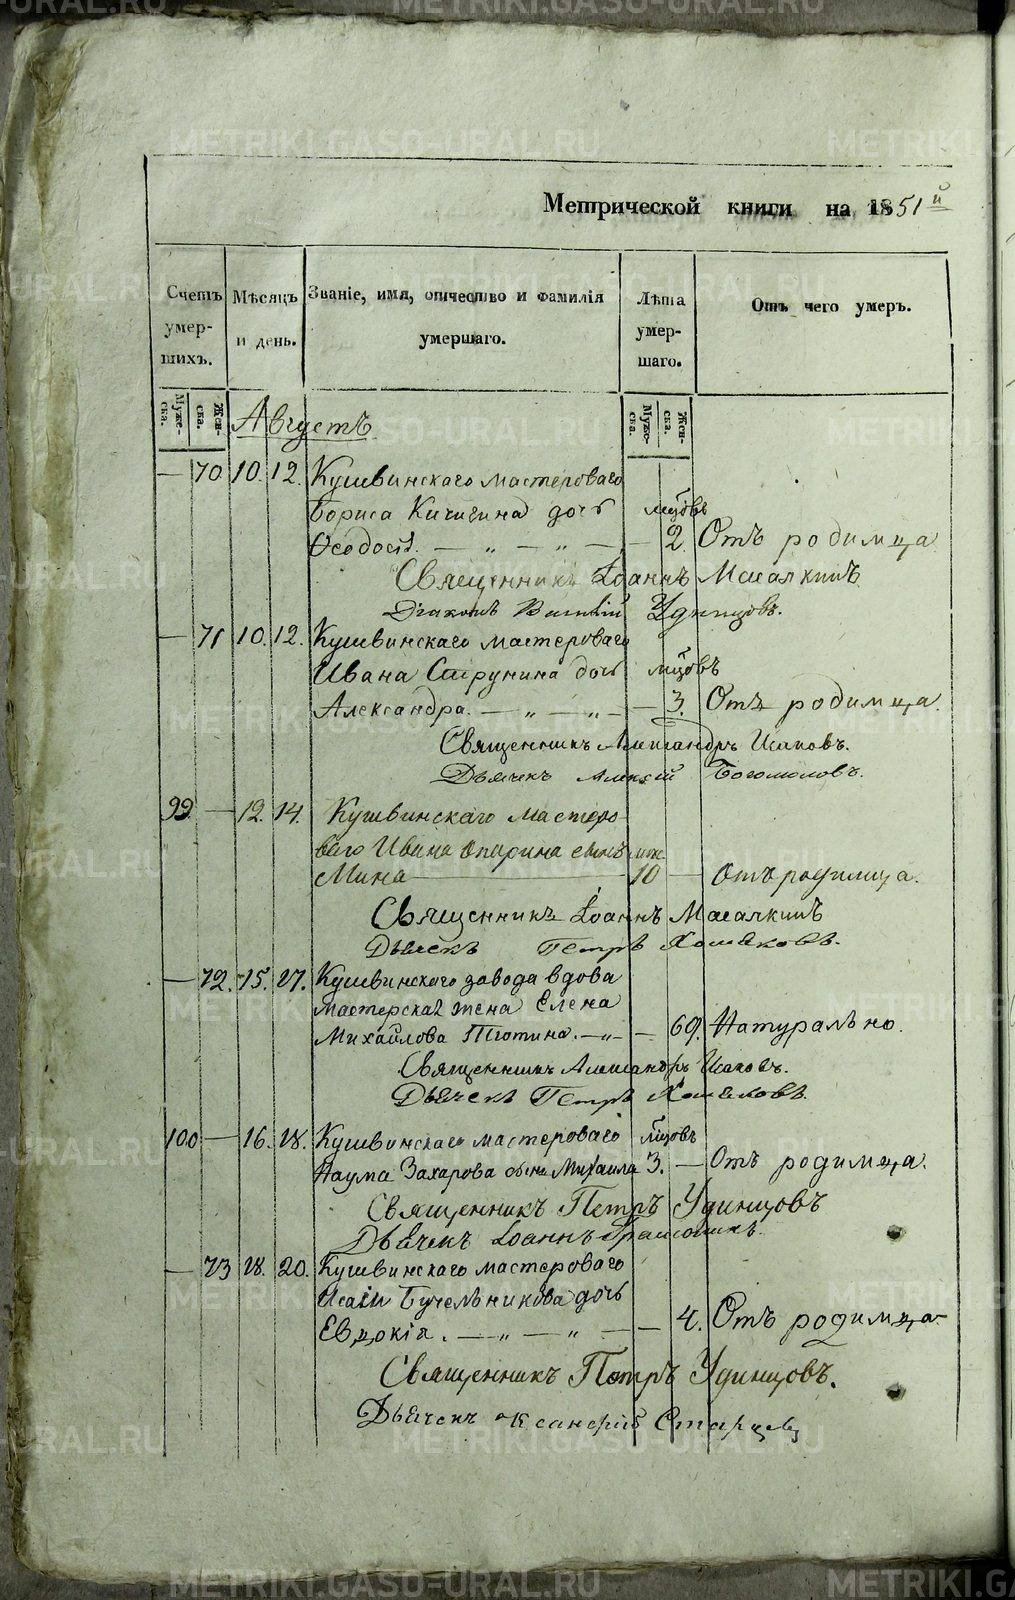 Метрической книги на 1851й
Счетъ умер-шихъ.
Мѣсяцъ и день.
Званіе, имя, отчество и фамилія умершаго.
Лѣта умер-шаго.
Отъ чего умеръ.
Муже-ска. Жен-ска. Муже-ска. Жен-ска.
Августъ
— 70 10. 12. Кушвинскаго мастероваго
Бориса Кичигина дочь мцовъ
Ѳеодосія. — „ — „ — — 2 Отъ родимца
Священникъ Іоаннъ
Діаконъ Удинцовъ.
— 71 10. 12. Кушвинскаго мастероваго
Ивана Струнина дочь мцовъ
Александра. — „ — „ — — 3. Отъ родимца.
Священникъ Александръ Исаковъ.
Дьячекъ Алексѣй Богомоловъ.
99 — 12. 14. Кушвинскаго мастеро-
ваго Ивана Опарина сынъ
Мина — 10 — Отъ родимца.
Священникъ Іоаннъ
Дьячекъ Петръ Хомяковъ.
— 72. 15. 17. Кушвинскаго завода вдова
мастерская жена Елена
Михайлова Тютина. — „ — — 69. Натурально.
Священникъ Александръ Исаковъ.
Дьячекъ Петръ Хомяковъ.
100 — 16. 18. Кушвинскаго мастероваго мцовъ
Наума Захарова сынъ Михаила 3. — Отъ родимца.
Священникъ Петръ Удинцовъ
Дьячекъ Іоаннъ
— 73 18. 20. Кушвинскаго мастероваго
Исаіи Бучельникова дочь
Евдокія. — „ — „ — — 4. Отъ родимца.
Священникъ Петръ Удинцовъ.
Дьячекъ Старцевъ
METRIKI.GASO-URAL.RU